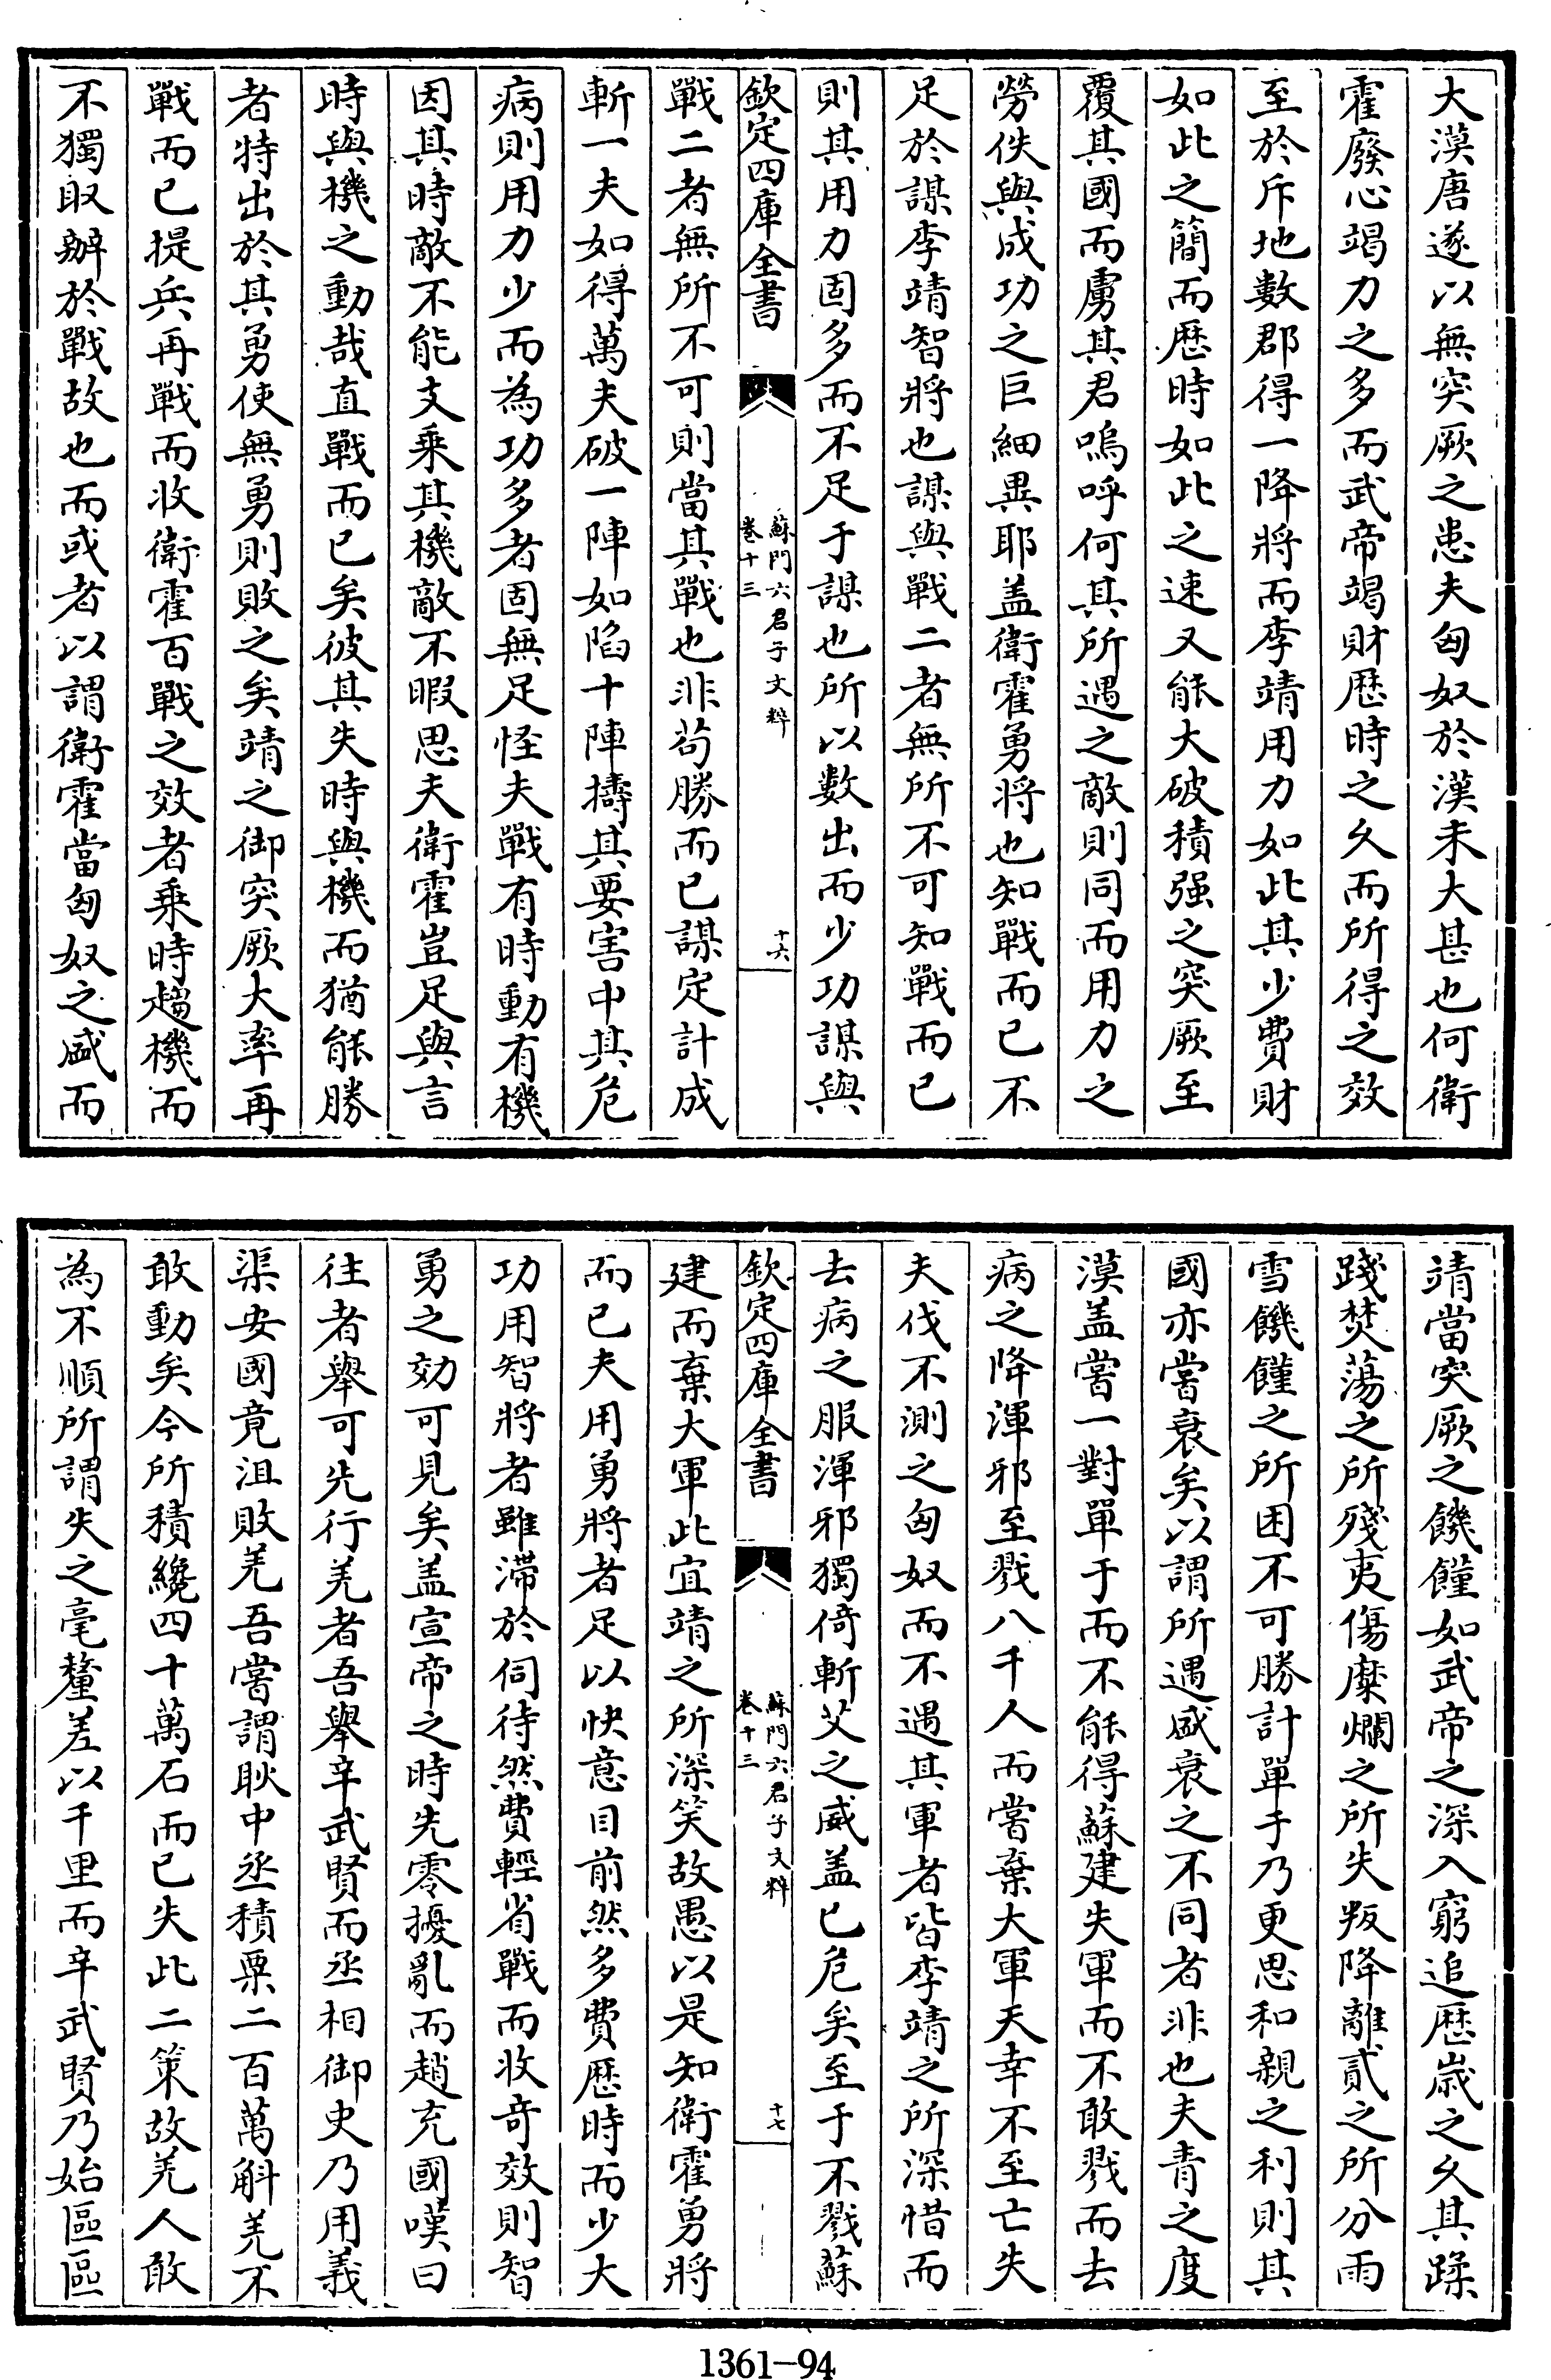 大漠唐遂以無突厥之患夫匈奴於漢未大甚也何衛
霍廢心竭力之多而武帝竭財歴時之久而所得之效
至於斥地數郡得一降將而李靖用力如此其少費財
如此之簡而歴時如此之速又能大破積强之突厥至
覆其國而虜其君嗚呼何其所遇之敵則同而用力之
勞佚與成功之巨細異耶盖衛霍勇將也知戰而已不
足於謀李靖智將也謀與戰二者無所不可知戰而已
則其用力固多而不足于謀也所以數出而少功謀與
欽定四庫全書
蘇門六君子文粹
卷十三
十六
戰二者無所不可則當其戰也非茍勝而已謀定計成
斬一夫如得萬夫破一陣如陷十陣擣其要害中其危
病則用力少而為功多者固無足怪夫戰有時動有機
因其時敵不能支乘其機敵不暇思夫衛霍豈足與言
時與機之動哉直戰而已矣彼其失時與機而猶能勝
者特出於其勇使無勇則敗之矣靖之御突厥大率再
戰而已提兵再戰而收衛霍百戰之效者乘時趨機而
不獨取辦於戰故也而或者以謂衛霍當匈奴之盛而
靖當突厥之饑饉如武帝之深入窮追歴歳之久其蹂
踐焚蕩之所殘夷傷糜爛之所失叛降離貳之所分雨
雪饑饉之所困不可勝計單于乃更思和親之利則其
國亦嘗衰矣以謂所遇盛衰之不同者非也夫青之度
漠盖嘗一對單于而不能得蘇建失軍而不敢戮而去
病之降渾邪至戮八千人而嘗棄大軍天幸不至亡失
夫伐不測之匈奴而不遇其軍者皆李靖之所深惜而
去病之服渾邪獨倚斬艾之威盖已危矣至于不戮蘇
欽定四庫全書
蘇門六君子文粹
卷十三
十七
建而棄大軍此宜靖之所深笑故愚以是知衛霍勇將
而已夫用勇將者足以快意目前然多費歴時而少大
功用智將者雖滯於伺待然費輕省戰而收奇效則智
勇之効可見矣盖宣帝之時先零擾亂而趙充國嘆曰
往者舉可先行羌者吾舉辛武賢而丞相御史乃用義
渠安國竟沮敗羌吾嘗謂耿中丞積粟二百萬斛羌不
敢動矣今所積纔四十萬石而已失此二策故羌人敢
為不順所謂失之毫釐差以千里而辛武賢乃始區區
1361-94